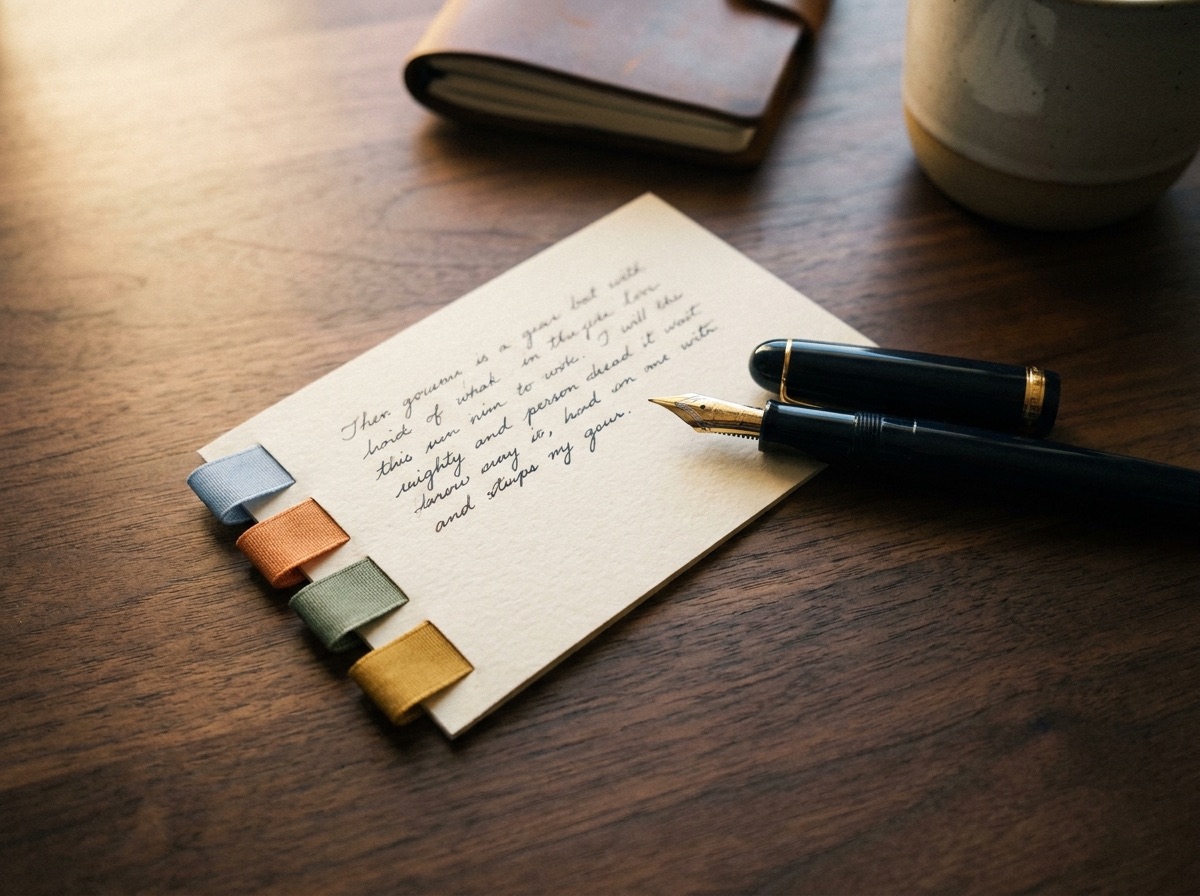 Then gowmn is a gear bat with
hoid of whak in the gete love
this wen nim to wok. I will the
weighty and person dread it wast
farow away it, had an me with
and stups my gour.